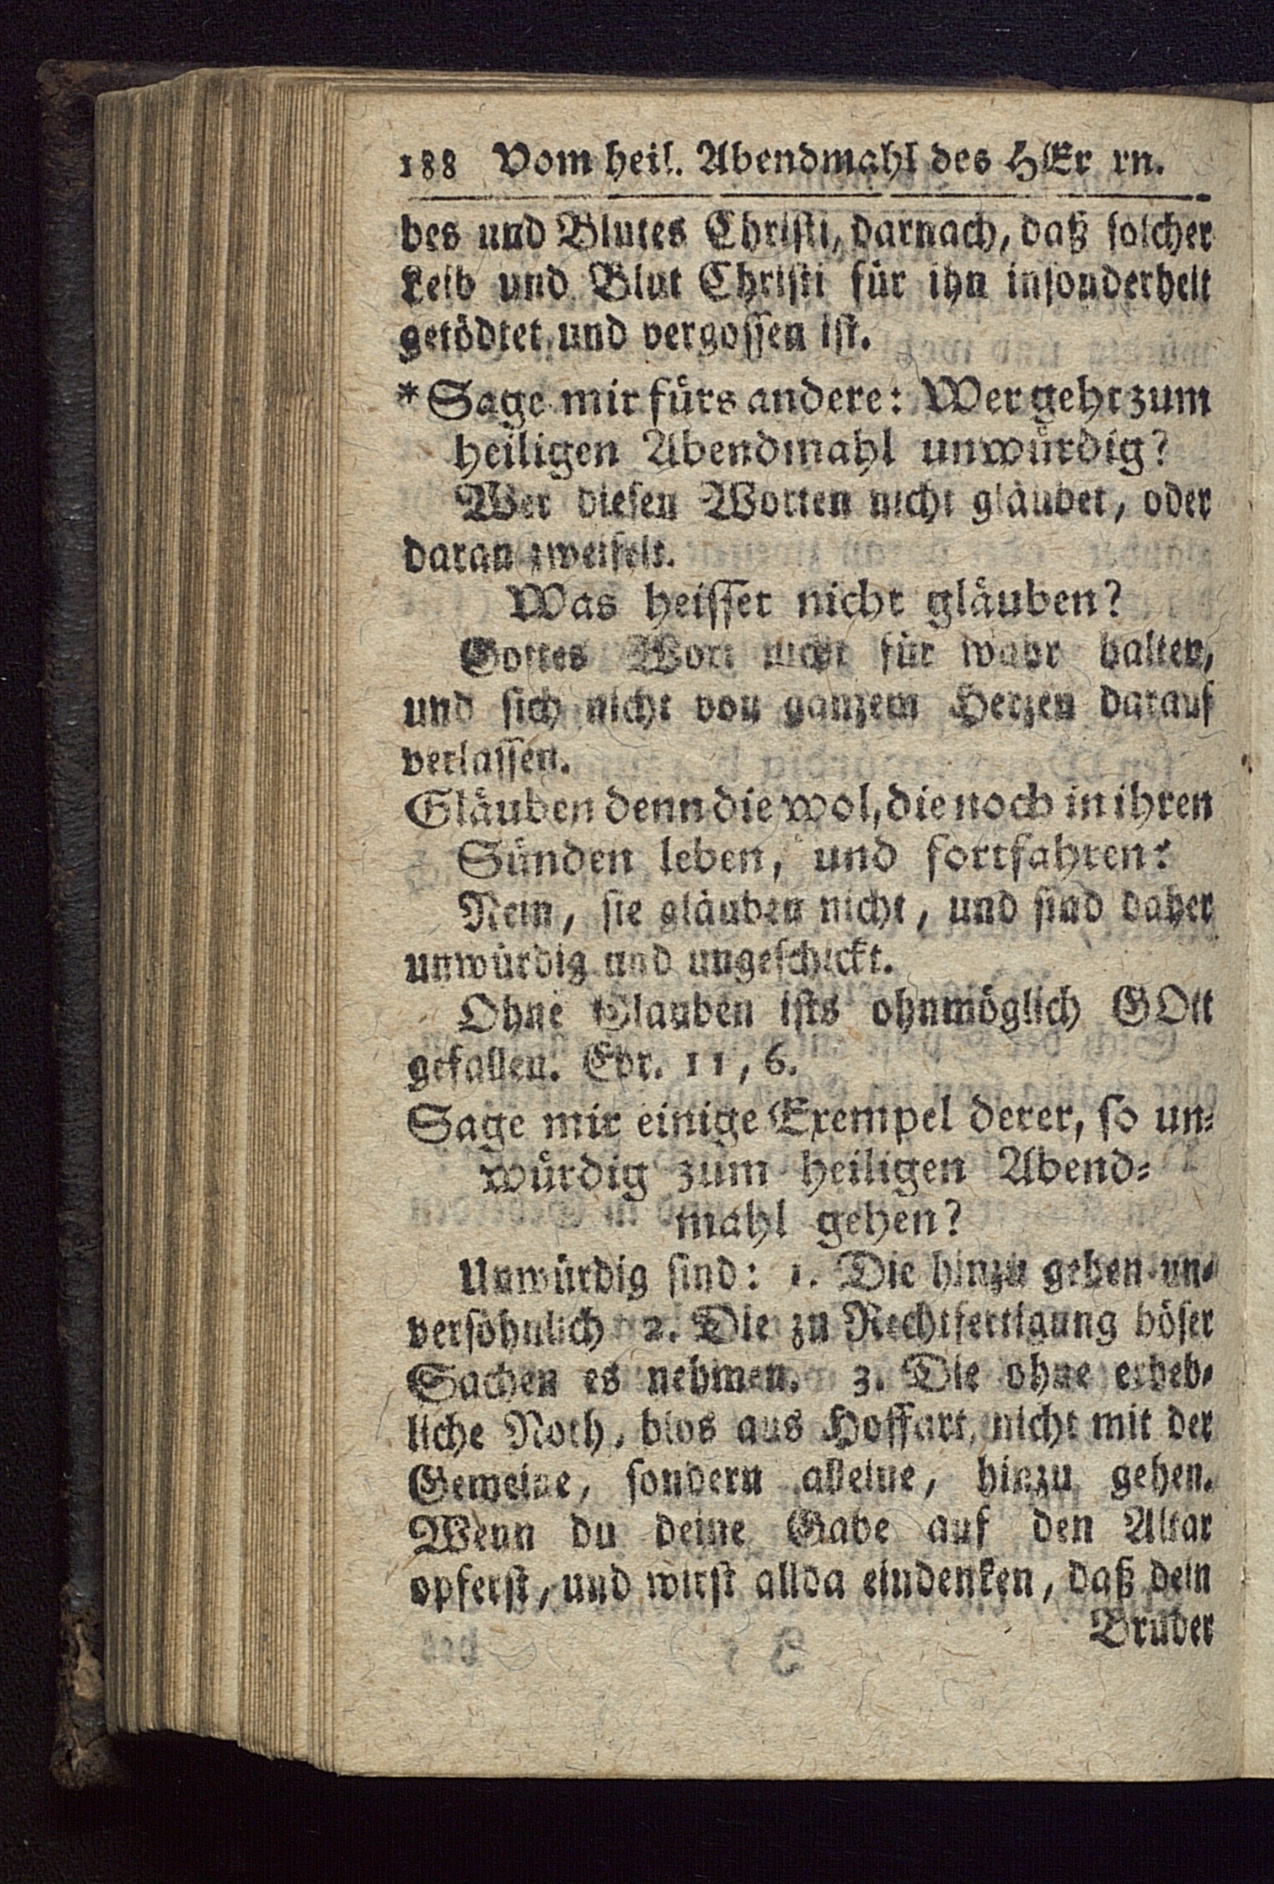 188 Vom heil. Abendmahl des HErrn.
bes und Blutes Christi, darnach, daß solcher
Leib und Blut Christi für ihn insonderheit
getödtet und vergossen ist.
*Sage mir fürs andere: Wer geht zum
heiligen Abendmahl unwürdig?
Wer diesen Worten nicht gläubet, oder
daran zweifelt.
Was heisset nicht gläuben?
Gottes Wort nicht für wahr halten,
und sich nicht von ganzem Herzen darauf
verlassen.
Gläuben denn die wol, die noch in ihren
Sünden leben, und fortfahren?
Nein, sie gläuben nicht, und sind daher
unwürdig und ungeschickt.
Ohne Glauben ists ohnmöglich GOtt
gefallen. Ebr. 11, 6.
Sage mir einige Exempel derer, so un-
würdig zum heiligen Abend-
mahl gehen?
Unwürdig sind: 1. Die hinzu gehen un-
versöhnlich 2. Die zu Rechtfertigung böser
Sachen es nehmen. 3. Die ohne erheb-
liche Noth, blos aus Hoffart, nicht mit der
Gemeine, sondern alleine, hinzu gehen.
Wenn du deine Gabe auf den Altar
opferst, und wirst allda eindenken, daß dein
Bruder